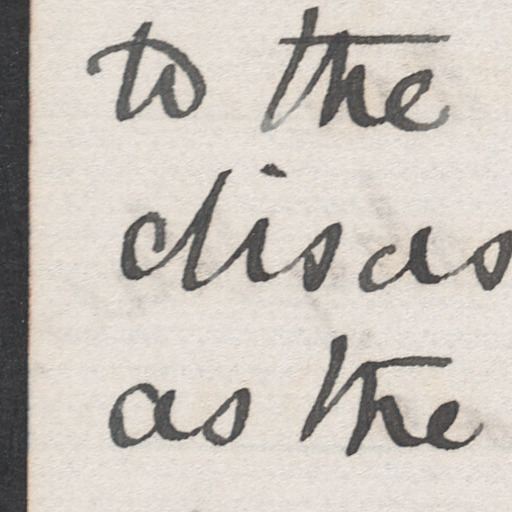 to the
disas
as the